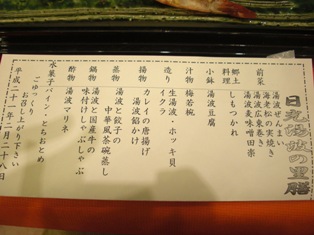 日光湯波の里膳
前菜 湯波ぜんまい
海老松の実焼き
湯波広東巻き
湯波麦味噌田楽
郷土料理 しもつかれ
小鉢 湯波豆腐
汁物 梅若椀
造り 生湯波・ホッキ貝
イクラ
揚物 カレイの唐揚げ
湯波餡かけ
蒸物 湯波と餃子の
中華風茶碗蒸し
鍋物 湯波と国産牛の
味付けしゃぶしゃぶ
酢物 湯波マリネ
水菓子 パイン・とちおとめ
ごゆっくり
お召し上がり下さい
平成二十一年二月二十八日